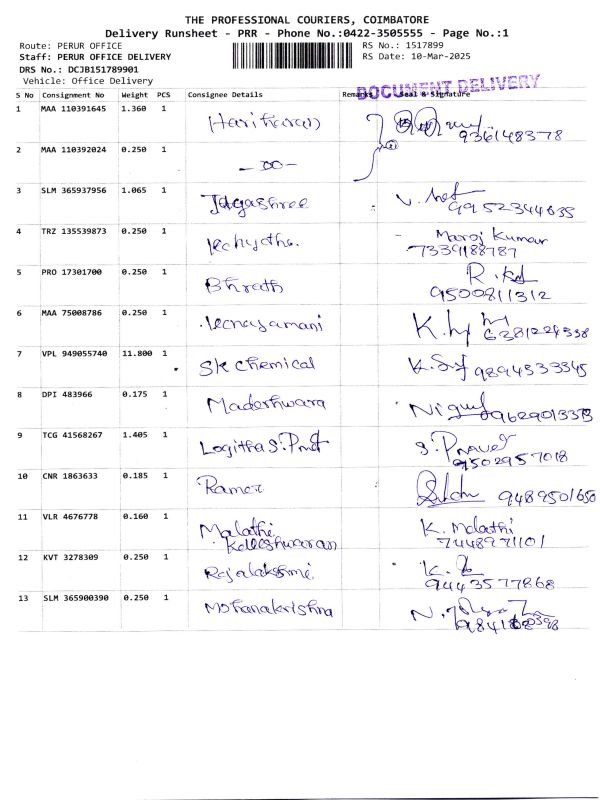 THE PROFESSIONAL COURIERS, COIMBATORE
Delivery Runsheet - PRR - Phone No.:0422-3505555 - Page No.:1
Route: PERUR OFFICE
RS No.: 1517899
Staff: PERUR OFFICE DELIVERY
RS Date: 10-Mar-2025
DRS No.: DCJB151789901
Vehicle: Office Delivery
DOCUMENT DELIVERY
S No Consignment No Weight PCS Consignee Details Remarks Seal & Signature
1 MAA 110391645 1.360 1 Hariharan 9361148378
2 MAA 110392024 0.250 1 -oo-
3 SLM 365937956 1.065 1 Jagashree 9952344635
4 TRZ 135539873 0.250 1 Manoj Kumar
7339188787
5 PRO 17301700 0.250 1 Bharath
9500811312
6 MAA 75008786 0.250 1 6381224338
7 VPL 949055740 11.800 1 SK chemical 9894533345
8 DPI 483966 0.175 1 Madeshwara 9629013353
9 TCG 41568267 1.405 1 Logitha S.
9502957018
10 CNR 1863633 0.185 1 9489501650
11 VLR 4676778 0.160 1 Malathi K. Malathi
Kaleeshwaran 7448971101
12 KVT 3278309 0.250 1 Rajalakshmi
9443577868
13 SLM 365900390 0.250 1 Mohanakrishna